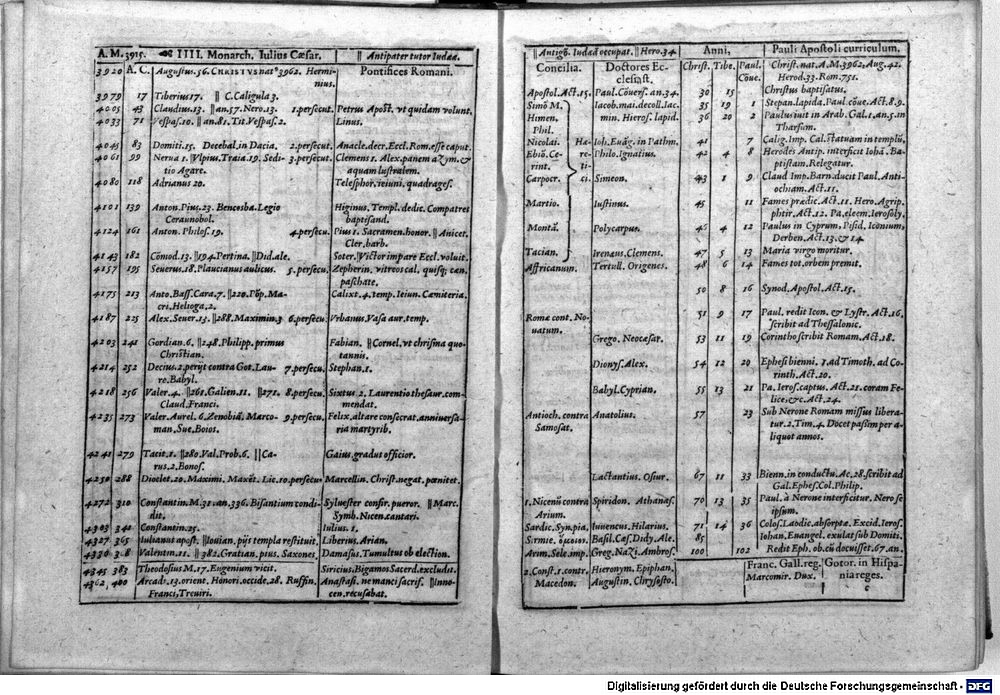 A. M. 3915. IIII. Monarch. Iulius Cæsar. || Antipater tutor Iudææ.
3920 A. C. Augustus. 56. CHRISTVS nat° 3962. Hermi- Pontifices Romani.
nius.
3979 17 Tiberius 17. || C. Caligula 3.
4005 43 Claudius. 13. || an. 57. Nero. 13. 1. persecut. Petrus Apost. vt quidam volunt.
4033 71 Vespas. 10. || an. 81. Tit. Vespas. 2. Linus.
4045 83 Domiti. 15. Decebal. in Dacia. 2. persecut. Anacle. decr. Eccl. Rom. esse caput.
4061 99 Nerua 1. Vlpius. Traia. 19. Sedi- 3. persecut. Clemens 1. Alex. panem azym. &
tio Agare. aquam lustralem.
4080 118 Adrianus 20. Telesphor. ieiuni. quadrages.
4101 139 Anton. Pius. 23. Bencosba. Legio Higinus. Templ. dedic. Compatres
Ceraunobol. baptisand.
4124 161 Anton. Philos. 19. 4. persecu. Pius 1. Sacramen. honor. || Anicet.
Cler. barb.
4143 182 Cōmod. 13. || 194. Pertina. || Did. ale. Soter. Victor impare Eccl. voluit.
4157 195 Seuerus. 18. Plaucianus aulicus. 5. persecu. Zepherin. vitreos cal. quisq; cæn.
paschate.
4175 213 Anto. Bass. Cara. 7. || 220. Pōp. Ma- Calixt. 4. temp. Ieiun. Cæmiteria.
cri. Helioga. 2.
4187 225 Alex. Seuer. 13. || 288. Maximin. 3 6. persecu. Vrbanus. Vasa aur. temp.
4203 241 Gordian. 6. || 248. Philipp. primus Fabian. || Cornel. vt chrisma quo-
Christian. tannis.
4214 252 Decius. 2. perijt contra Got. Lau- 7. persecu. Stephan. 1.
re. Babyl.
4218 256 Valer. 4. || 261. Galien. 11. || 271. 8. persecu. Sixtus. 2. Laurentio thesaur. com-
Claud. Franci. mendat.
4235 273 Valer. Aurel. 6. Zenobiā. Marco- 9. persecu. Felix, altare consecrat. anniuersa-
man. Sue. Boios. ria martyrib.
4241 279 Tacit. 1. || 280. Val. Prob. 6. || Ca- Gaius. gradus officior.
rus. 2. Bonos.
4250 288 Dioclet. 20. Maximi. Maxēt. Lic. 10. persecu. Marcellin. Christ. negat. pœnitet.
4272 310 Constantin. M. 31. an. 336. Bisantium condi- Syluester confir. pueror. || Marc.
dit. Symb. Nicen. cantari.
4303 341 Constantin. 25. Iulius. 1.
4327 365 Iulianus apost. || Iouian. pijs templa restituit. Liberius. Arian.
4330 368 Valentin. 11. || 382. Gratian. pius. Saxones. Damasus. Tumultus ob election.
4345 383 Theodosius M. 17. Eugenium vicit. Siricius. Bigamos Sacerd. excludit.
4362, 400 Arcadi. 13. orient. Honori. occide. 28. Ruffin. Anastasi. ne manci sacrif. || Inno-
Franci, Treuiri. cen. recusabat.
|| Antigō. Iudæā occupat. || Hero. 34. Anni, Pauli Apostoli curriculum.
Concilia. Doctores Ec- Christ. Tibe. Paul. Christ. nat. A. M. 3962, Aug. 42.
clesiast. Cōue. Herod. 33. Rom. 751.
Apostol. Act. 15. Paul. Cōuers. an. 34. 30 15 Christus baptisatus.
Simō M. Iacob. mai. decoll. Iac. 35 19 1 Stepan. lapida. Paul. cōue. Act. 8. 9.
Himen. min. Hieros. lapid. 36 20 2 Paulus iuit in Arab. Gal. 1. an. 5. in
Phil. Tharsum.
Nicolai. Hæ- Ioh. Euāg. in Pathm. 41 7 Calig. Imp. Cal. statuam in templū,
Ebiō. Ce- re- Philo. Ignatius. 42 4 8 Herodes Antip. interficit Iohā. Ba-
rint. ti- ptistam. Relegatur.
Carpocr. ci. Simeon. 43 1 9 Claud Imp. Barn. ducit Paul. Anti-
ochiam. Act. 11.
Martio. Iustinus. 45 11 Fames prædic. Act. 11. Hero. Agrip.
phtir. Act. 12. Pa. eleem. Ierosoly.
Montā. Polycarpus. 46 4 12 Paulus in Cyprum, Pisid. Iconium,
Derben. Act. 13. & 14
Tacian. Irenæus. Clemens. 47 5 13 Maria virgo moritur.
Affricanum. Tertull. Origenes. 48 6 14 Fames tot. orbem premit.
50 8 16 Synod. Apostol. Act. 15.
Romæ cont. No- 51 9 17 Paul. redit Icon. & Lystr. Act. 16.
uatum. scribit ad Thessalonic.
Grego. Neocæsar. 53 11 19 Corintho scribit Romam. Act. 18.
Dionys. Alex. 54 12 20 Ephesi bienni. 1. ad Timoth. ad Co-
rinth. Act. 20.
Babyl. Cyprian. 55 13 21 Pa. Ieros. captus. Act. 21. coram Fe-
lice, &c. Act. 24.
Antioch. contra Anatolius. 57 23 Sub Nerone Romam missus libera-
Samosat. tur. 2. Tim. 4. Docet passim per a-
liquot annos.
Lactantius. Osiur. 67 11 33 Bienn. in conductu. Ac. 28. scribit ad
Gal. Ephes. Col. Philip.
1. Nicenū contra Spiridon. Athanas. 70 13 35 Paul. à Nerone interficitur. Nero se
Arium. ipsum.
Sardic. Syn. pia. Iuuencus. Hilarius. 71 14 36 Colos. Laodic. absorptæ. Excid. Ieros.
Sirmie. Basil. Cæs. Didy. Ale. 85 Iohan. Euangel. exulat sub Domiti.
Arim. Sele. imp. Greg. Nazi. Ambros. 100 102 Redit Eph. ob. cū docuisset. 67. an.
2. Const. 1. contr. Hieronym. Epiphan. Franc. Gall. reg. Gotor. in Hispa-
Macedon. Augustin. Chrysosto. Marcomir. Dux. nia reges.
c
Digitalisierung gefördert durch die Deutsche Forschungsgemeinschaft - DFG